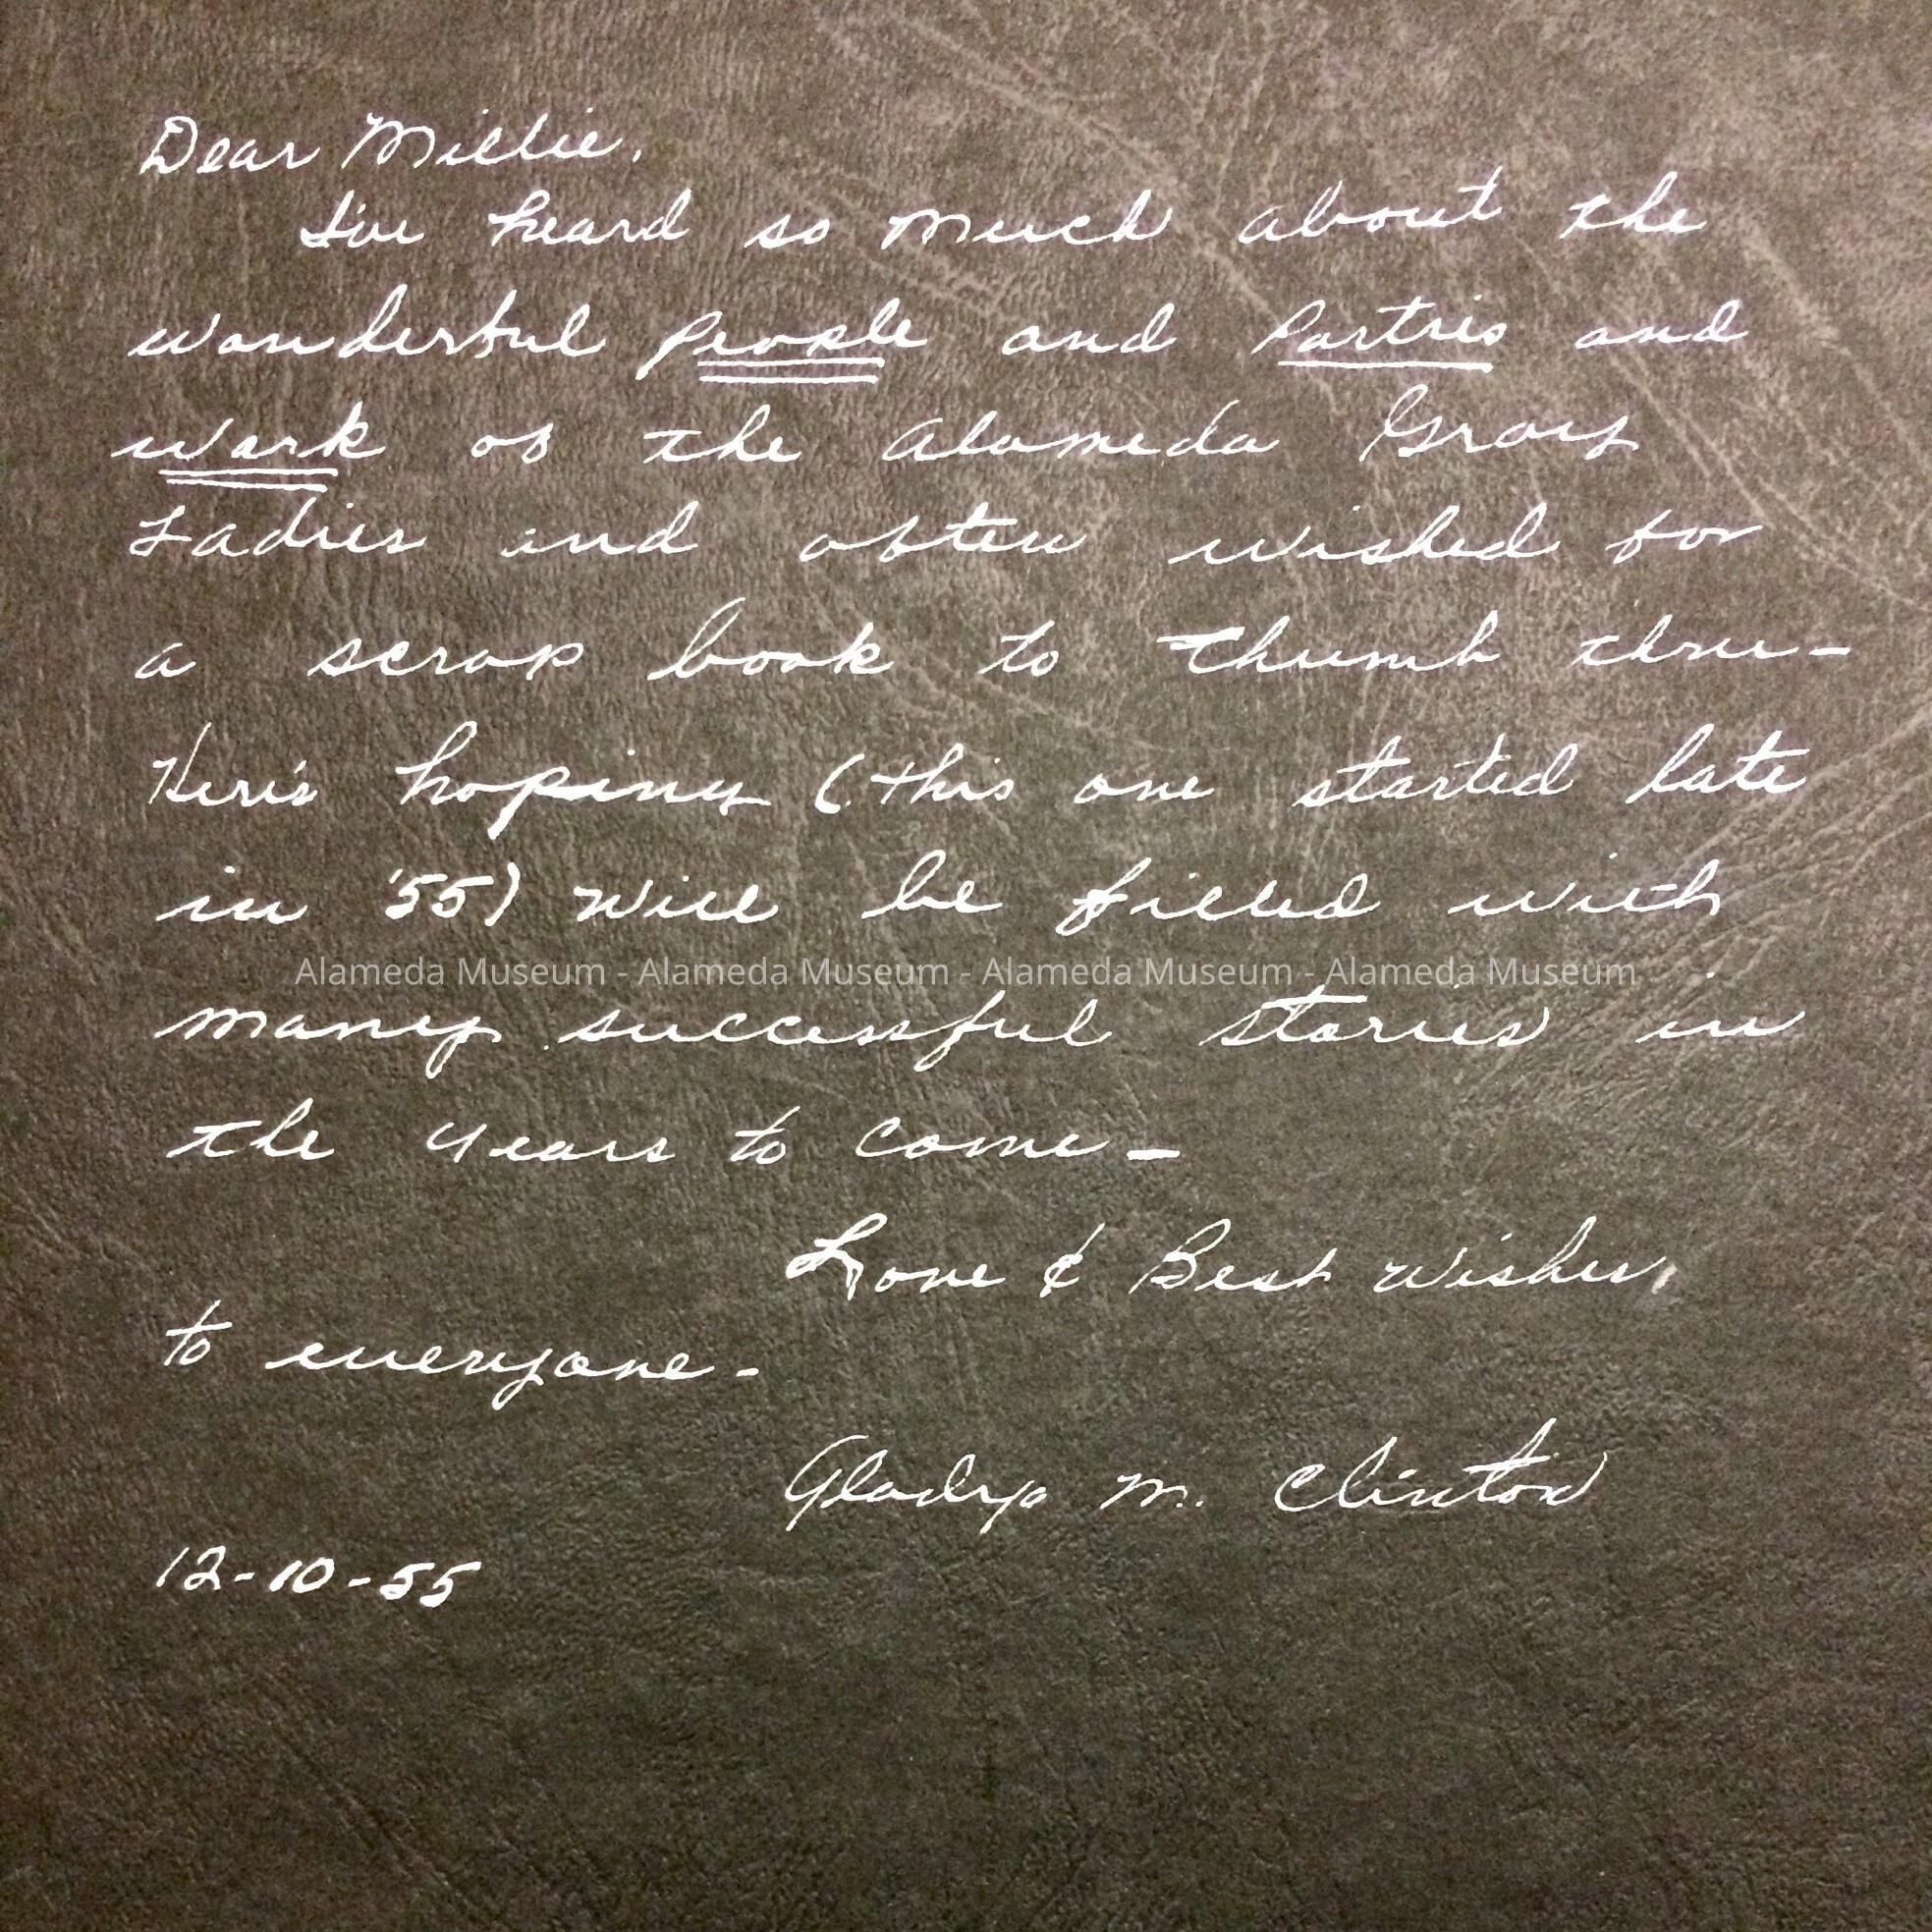 Dear Millie,
I've heard so much about the
wonderful people and Parties and
work of the Alameda Gray
Ladies and often wished for
a scrap book to thumb thru-
Here's hoping (this one started late
in '55) will be filled with
Alameda Museum - Alameda Museum - Alameda Museum - Alameda Museum
many successful stories in
the years to come-
Love & Best wishes,
to everyone-
Gladys M. Clinton
12-10-55